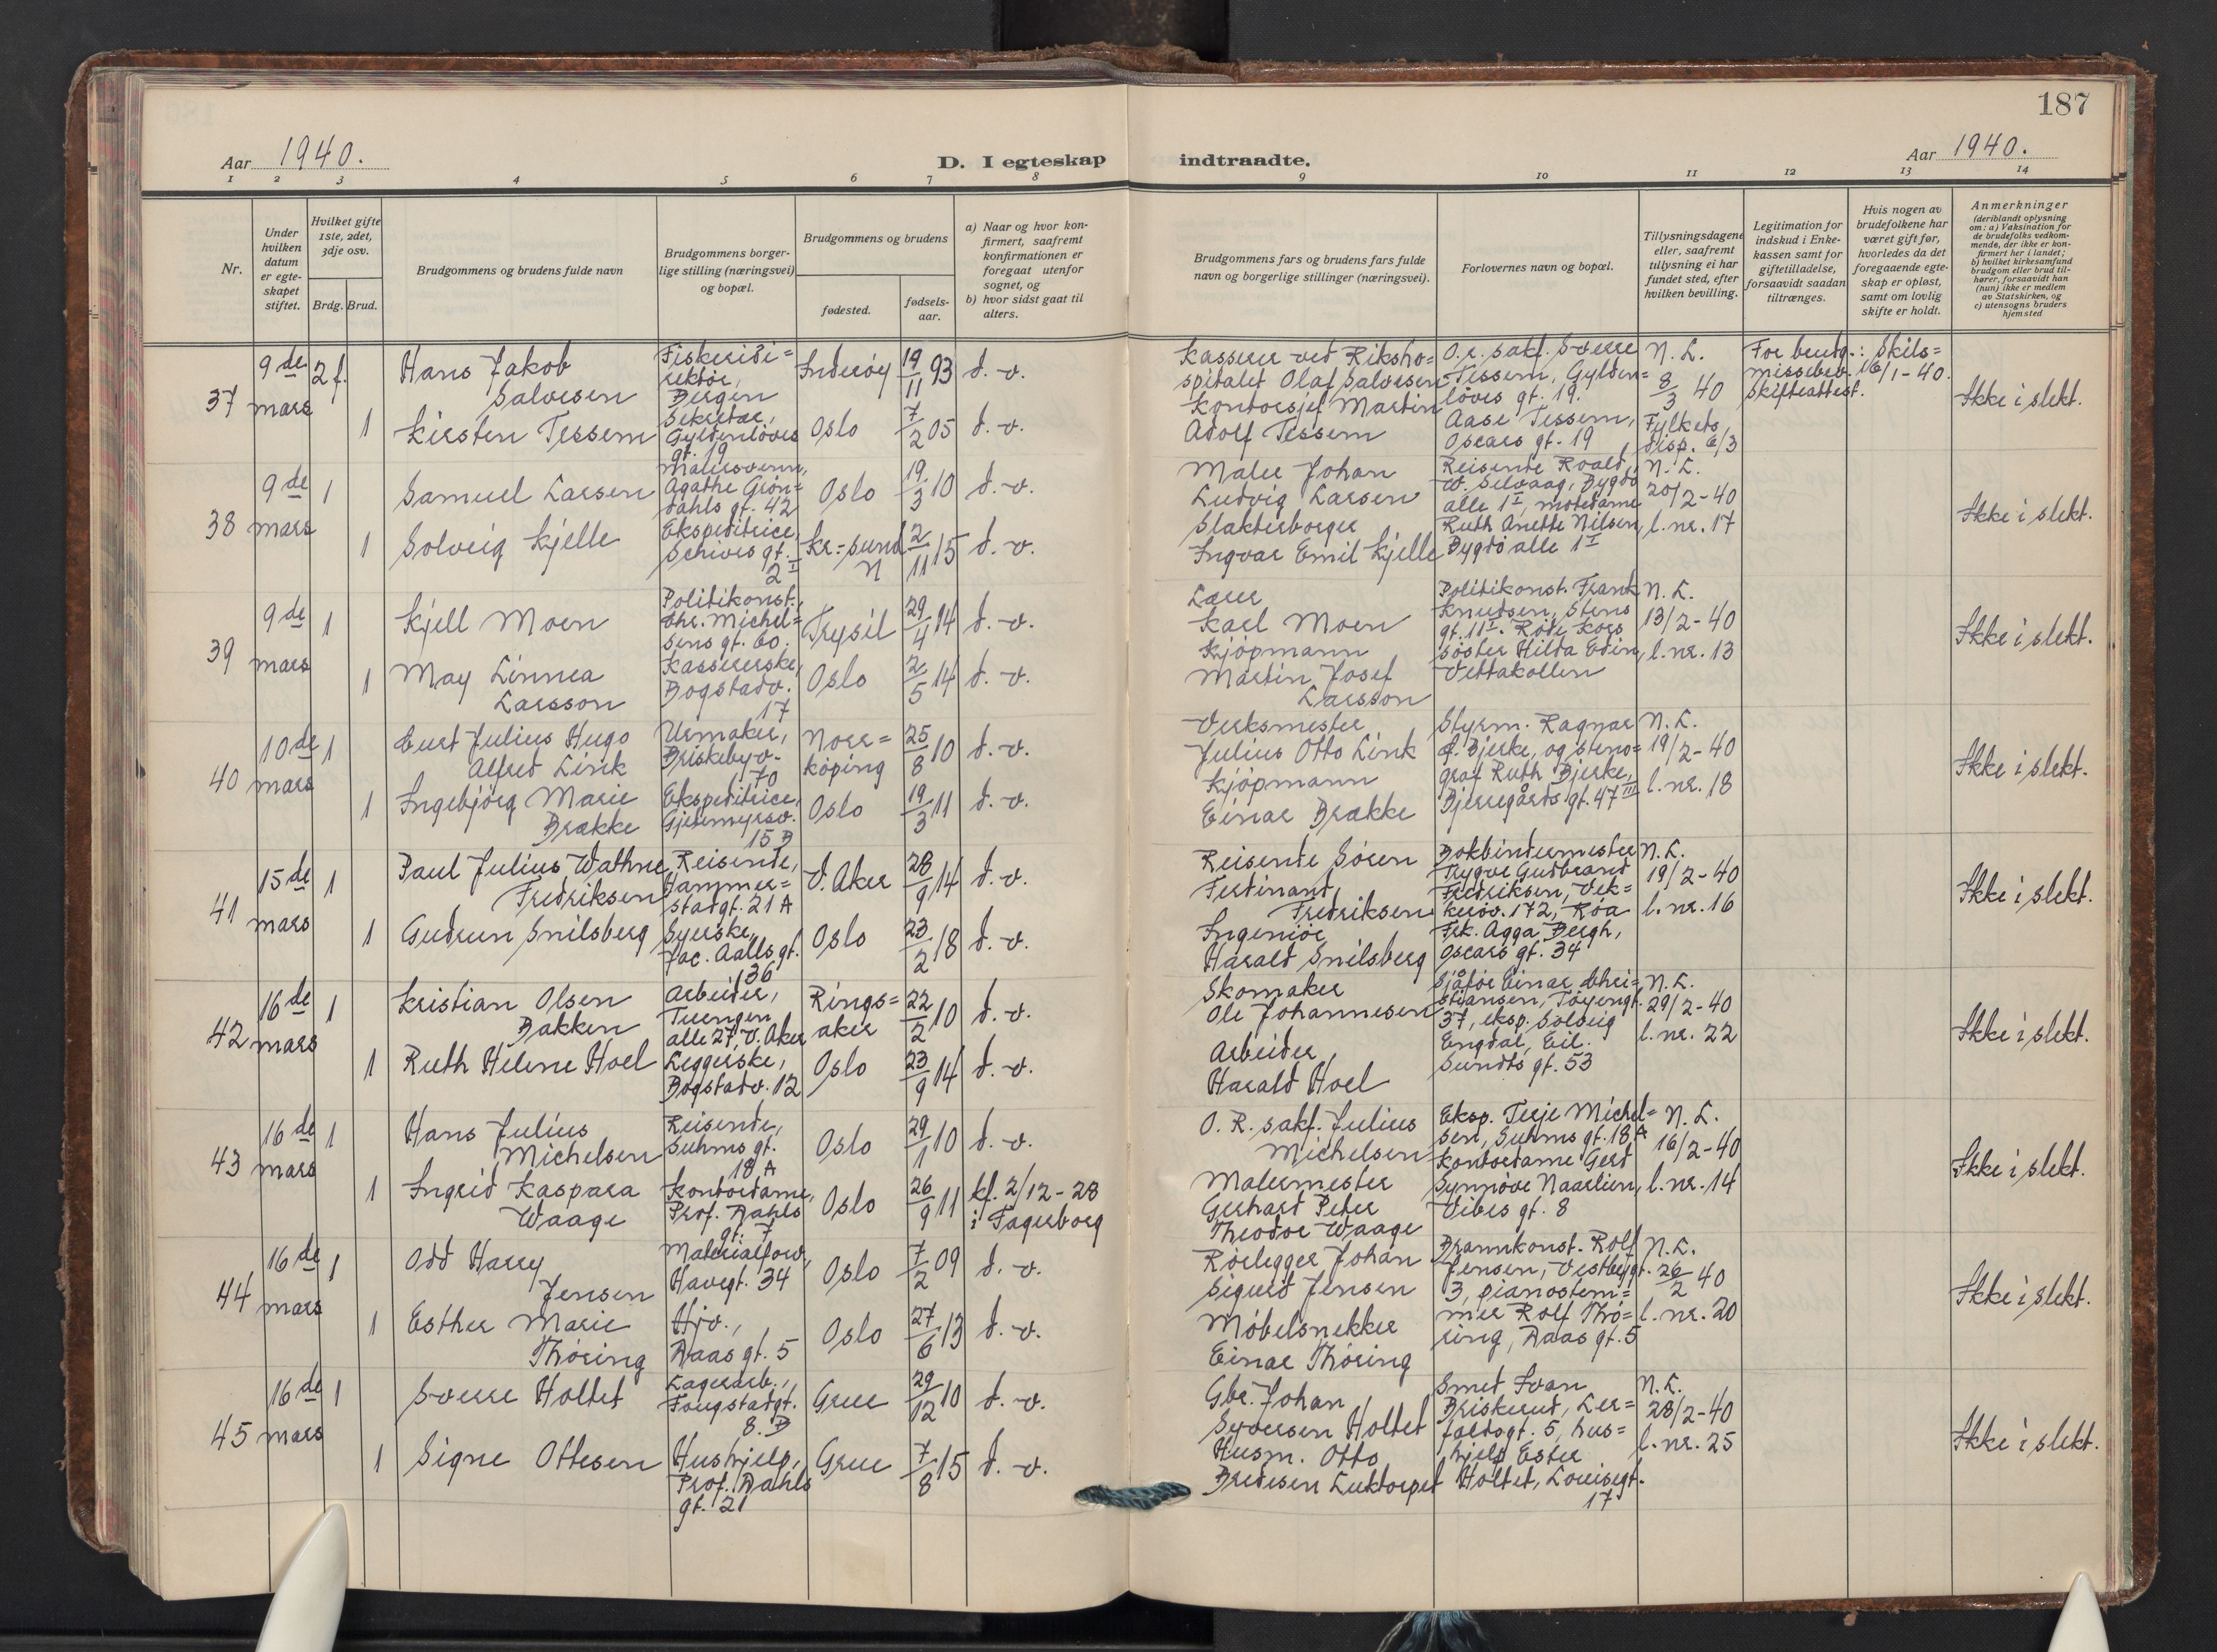 187
Aar 1940.
D. I egteskap indtraadte.
Aar 1940.
1 2 3 4 5 6 7 8 9 10 11 12 13 14
Nr.
Under
hvilken
datum
er egte-
skapet
stiftet.
Hvilket gifte
1ste, 2det,
3dje osv.
Brdg. Brud.
Brudgommens og brudens fulde navn
Brudgommens borger-
lige stilling (næringsvei)
og bopæl.
Brudgommens og brudens
fødested.
fødsels-
aar.
a) Naar og hvor kon-
firmert, saafremt
konfirmationen er
foregaat utenfor
sognet, og
b) hvor sidst gaat til
alters.
Brudgommens fars og brudens fars fulde
navn og borgerlige stillinger (næringsvei).
Forlovernes navn og bopæl.
Tillysningsdagene
eller, saafremt
tillysning ei har
fundet sted, efter
hvilken bevilling.
Legitimation for
indskud i Enke-
kassen samt for
giftetilladelse,
forsaavidt saadan
tiltrænges.
Hvis nogen av
brudefolkene har
været gift før,
hvorledes da det
foregaaende egte-
skap er opløst,
samt om lovlig
skifte er holdt.
Anmerkninger
(deriblandt oplysning
om: a) Vaksination for
de brudefolks vedkom-
mende, der ikke er kon-
firmert her i landet;
b) hvilket kirkesamfund
brudgom eller brud til-
hører, forsaavidt han
(hun) ikke er medlem
av Statskirken, og
c) utensogns bruders
hjemsted
37
9de
mars
2 f.
Hans Jakob
Salvesen
Fiskeridi=
rektør,
Bergen
Inderöy
19/11 93
d. v.
1
Kirsten Tessem
Sekretær,
Gyldenlöves
gt. 19
Oslo
7/2 05
d. v.
Kasserer ved Riksho=
spitalet Olaf Salvesen
Kontorsjef Martin
Adolf Tessem
O.r. sakf. Sverre
Tessem, Gylden=
löves gt. 19.
Aase Tessem,
Oscars gt. 19
N. L.
8/3 40
Fylkets
disp. 6/3
For brudg.: Skils=
missebev. 16/1-40.
Skifteattest.
Ikke i slekt.
38
9de
mars
1
Samuel Larsen
Malersvenn,
Agathe Grön=
dahls gt. 42
Oslo
19/3 10
d. v.
1
Solveig Kjelle
Ekspeditrice,
Schives gt.
2 I
Kr.=sund
N
2/11 15
d. v.
Maler Johan
Ludvig Larsen
Slakterborger
Ingvar Emil Kjelle
Reisende Roald
W. Selvaag, Bygdö
alle 1 I, motedame
Ruth Anette Nilsen,
Bygdö alle 1 I
N. L.
20/2-40
l. nr. 17
Ikke i slekt.
39
9de
mars
1
Kjell Moen
Politikonst.,
Chr. Michel=
sens gt. 60.
Trysil
29/4 14
d. v.
1
May Linnea
Larsson
Kassererske,
Bogstadv.
17
Oslo
2/5 14
d. v.
Lærer
Karl Moen
Kjöpmann
Martin Josef
Larsson
Politikonst. Frank
Knudsen, Stens
gt. 11 I. Röde Kors
söster Hilda Edin,
Vettakollen
N. L.
13/2-40
l. nr. 13
Ikke i slekt.
40
10de
mars
1
Curt Julius Hugo
Alfred Link
Urmaker,
Briskebyv.
70
Norr=
köping
25/8 10
d. v.
1
Ingebjörg Marie
Brække
Ekspeditrice,
Gjetemyrsv.
15 B
Oslo
19/3 11
d. v.
Verksmester
Julius Otto Link
Kjöpmann
Einar Brække
Styrm. Ragnar
Bjerke, og steno=
graf Ruth Bjerke,
Bjerregårds gt. 47 III
N. L.
19/2-40
l. nr. 18
Ikke i slekt.
41
15de
mars
1
Paul Julius Wathne
Fredriksen
Reisende,
Hammer=
stadgt. 21 A
V. Aker
28/9 14
d. v.
1
Gudrun Snilsberg
Syerske,
Jac. Aalls gt.
36
Oslo
23/2 18
d. v.
Reisende Sören
Ferdinand
Fredriksen
Ingeniör
Harald Snilsberg
Bokbindermester
Trygve Gudbrand
Fredriksen, Vek=
keröv. 172, Röa
Frk. Agga Bergh,
Oscars gt. 34
N. L.
19/2-40
l. nr. 16
Ikke i slekt.
42
16de
mars
1
Kristian Olsen
Bakken
Arbeider,
Tuengen
alle 27, V. Aker
Rings=
aker
22/2 10
d. v.
1
Ruth Helene Hoel
Leggerske,
Bogstadv. 12
Oslo
23/9 14
d. v.
Skomaker
Ole Johannesen
Arbeider,
Harald Hoel
Sjåför Einar Chri=
stiansen, Töyengt.
37, eksp. Solveig
Engdal, Eil.
Sundts gt. 53
N. L.
29/2-40
l. nr. 22
Ikke i slekt.
43
16de
mars
1
Hans Julius
Michelsen
Reisende,
Suhms gt.
18 A
Oslo
29/1 10
d. v.
1
Ingrid Kaspara
Waage
Kontordame,
Prof. Dahls
gt. 7
Oslo
26/9 11
kf. 2/12-28
i Fagerborg
O. R. sakf. Julius
Michelsen
Malermester
Gerhard Peter
Theodor Waage
Eksp. Terje Michel=
sen, Suhms gt. 18 A
Kontordame Gerd
Synnöve Naarlien,
Vibes gt. 8
N. L.
16/2-40
l. nr. 14
Ikke i slekt.
44
16de
mars
1
Odd Harry
Jensen
Materialforv.,
Havegt. 34
Oslo
7/2 09
d. v.
1
Esther Marie
Thöring
Hjv.,
Daas gt. 5
Oslo
27/6 13
d. v.
Rörlegger Johan
Sigurd Jensen
Möbelsnekker
Einar Thöring
Brannkonst. Rolf
Jensen, Vestbygt.
3, pianostem=
mer Rolf Thö=
ring, Daas gt. 5
N. L.
26/2 40
l. nr. 20
Ikke i slekt.
45
16de
mars
1
Sverre Holtet
Lagerarb.,
Fougstadgt.
8. B
Grue
29/12 10
d. v.
1
Signe Ottesen
Hushjelp,
Prof. Dahls
gt. 21
Grue
7/8 15
d. v.
Gbr. Johan
Syversen Holtet
Husm. Otto
Bredesen Luktorpet
Smed Ivan
Briskerud, Ler=
faldsgt. 5, hus=
hjelp Ester
Holtet, Louisegt.
17
N. L.
28/2-40
l. nr. 25
Ikke i slekt.